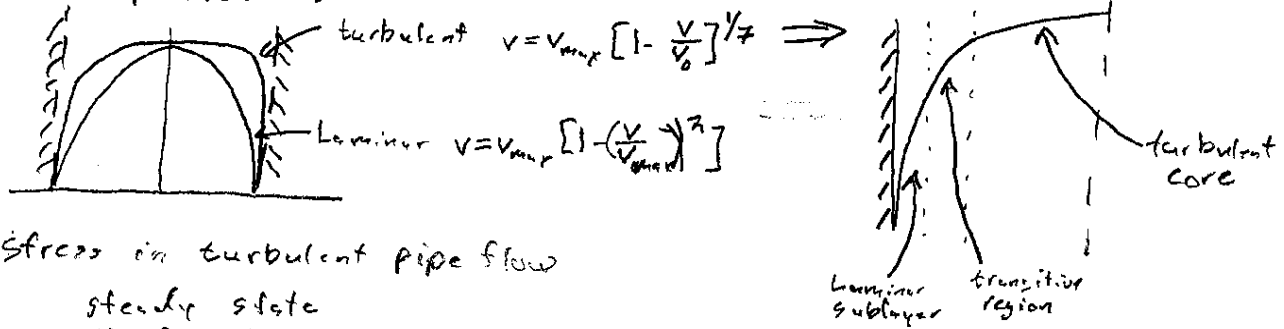 turbulent v = v_max [1 - v/v_0]^1/7 ⟹
Laminar v = v_max [1 - (v/v_max)^2]
turbulent
core
Stress in turbulent pipe flow
steady state
Laminar
sublayer
transitive
region